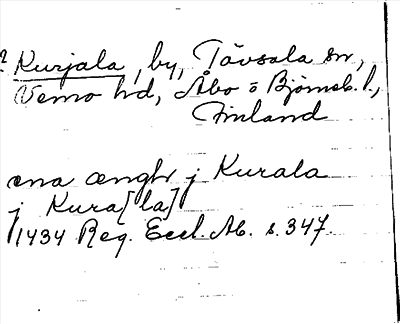 ? Kurjala, by, Tövsala sn,
Vemo hd, Åbo o Björneb. l.,
Finland
ena ænghr j Kurala
j Kura[la]
1434 Reg. Eccl. Ab. s. 347.